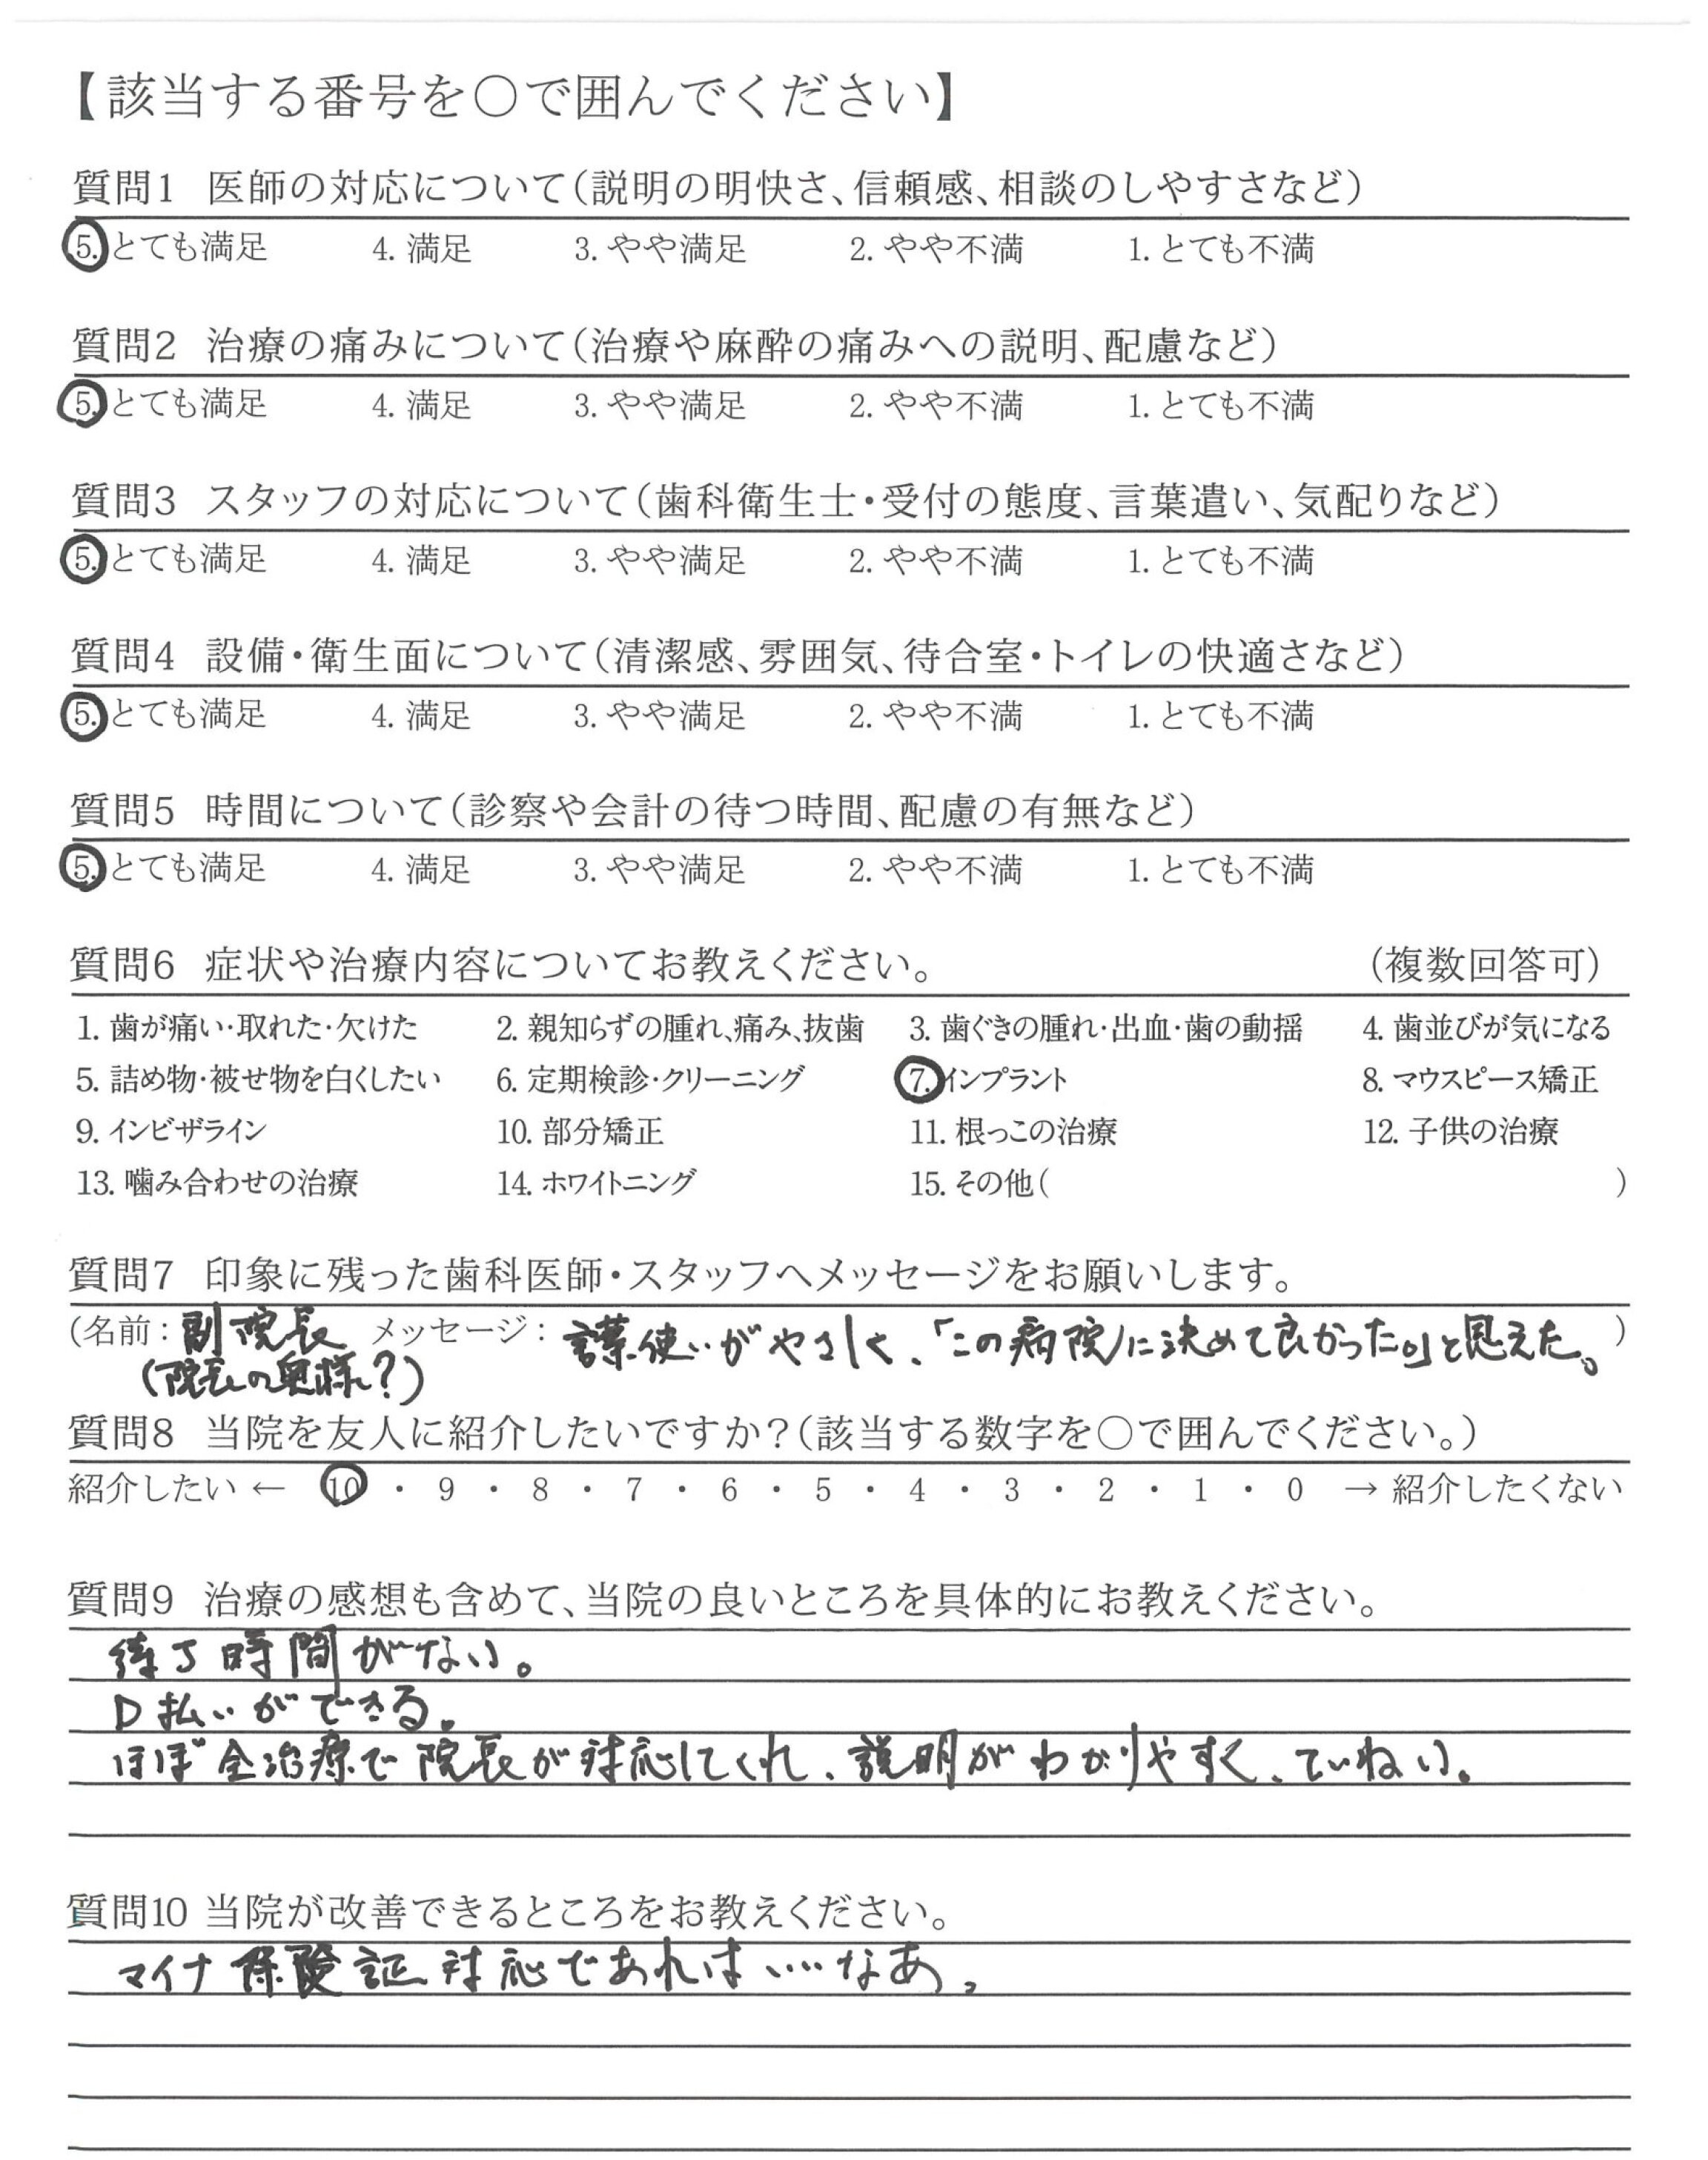 【該当する番号を○で囲んでください】
質問1 医師の対応について(説明の明快さ、信頼感、相談のしやすさなど)
5. とても満足 4. 満足 3. やや満足 2. やや不満 1. とても不満
質問2 治療の痛みについて(治療や麻酔の痛みへの説明、配慮など)
5. とても満足 4. 満足 3. やや満足 2. やや不満 1. とても不満
質問3 スタッフの対応について(歯科衛生士・受付の態度、言葉遣い、気配りなど)
5. とても満足 4. 満足 3. やや満足 2. やや不満 1. とても不満
質問4 設備・衛生面について(清潔感、雰囲気、待合室・トイレの快適さなど)
5. とても満足 4. 満足 3. やや満足 2. やや不満 1. とても不満
質問5 時間について(診察や会計の待つ時間、配慮の有無など)
5. とても満足 4. 満足 3. やや満足 2. やや不満 1. とても不満
質問6 症状や治療内容についてお教えください。 (複数回答可)
1. 歯が痛い・取れた・欠けた 2. 親知らずの腫れ、痛み、抜歯 3. 歯ぐきの腫れ・出血・歯の動揺 4. 歯並びが気になる
5. 詰め物・被せ物を白くしたい 6. 定期検診・クリーニング 7. インプラント 8. マウスピース矯正
9. インビザライン 10. 部分矯正 11. 根っこの治療 12. 子供の治療
13. 噛み合わせの治療 14. ホワイトニング 15. その他( )
質問7 印象に残った歯科医師・スタッフへメッセージをお願いします。
(名前: 副院長 メッセージ: 言葉使いがやさしく、「この病院に決めて良かった。」と思えた。)
(院長の奥様?)
質問8 当院を友人に紹介したいですか?(該当する数字を○で囲んでください。)
紹介したい ← 10 ・ 9 ・ 8 ・ 7 ・ 6 ・ 5 ・ 4 ・ 3 ・ 2 ・ 1 ・ 0 → 紹介したくない
質問9 治療の感想も含めて、当院の良いところを具体的にお教えください。
待つ時間がない。
D払いができる。
ほぼ全治療で院長が対応してくれ、説明がわかりやすく、ていねい。
質問10 当院が改善できるところをお教えください。
マイナ保険証対応であれば……なあ。